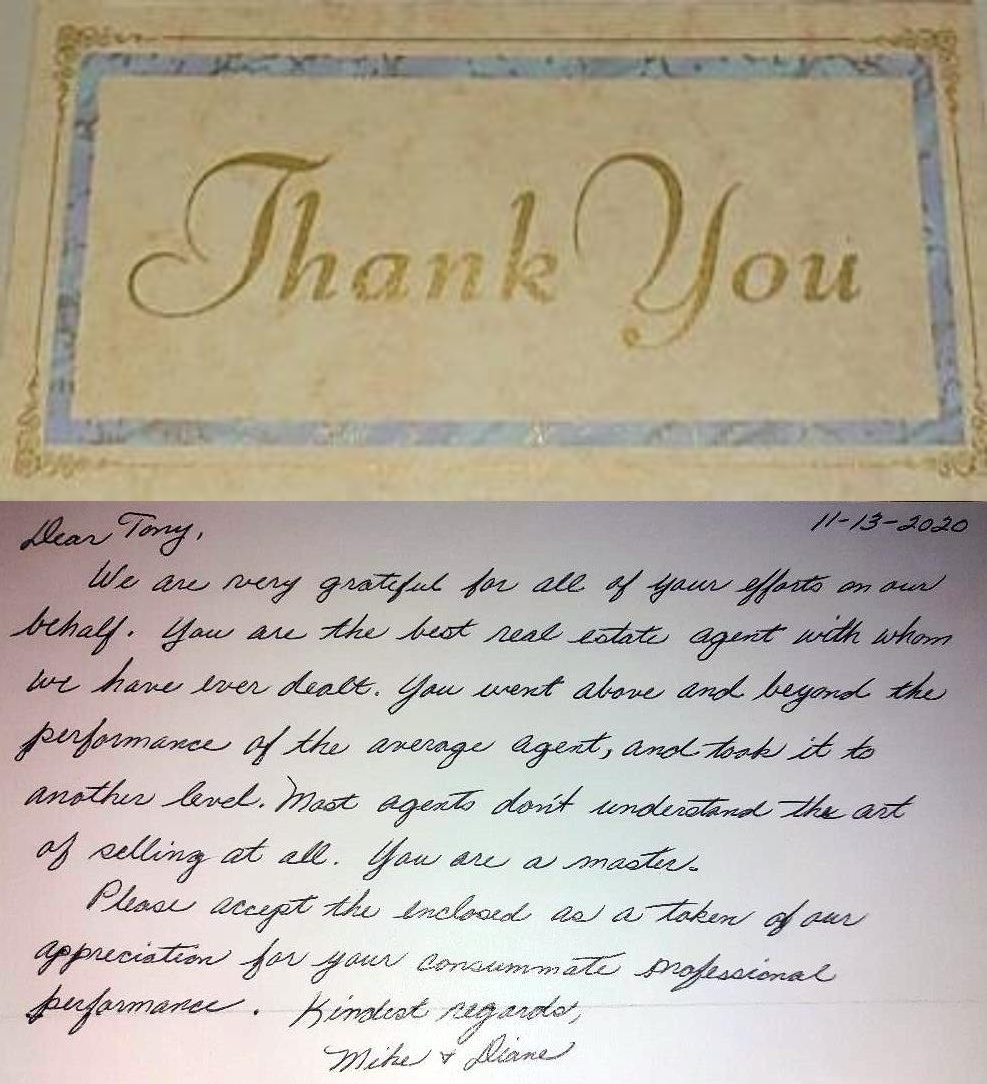 Thank You
Dear Tony,
11-13-2020
We are very grateful for all of your efforts on our
behalf. You are the best real estate agent with whom
we have ever dealt. You went above and beyond the
performance of the average agent, and took it to
another level. Most agents don't understand the art
of selling at all. You are a master.
Please accept the enclosed as a token of our
appreciation for your consummate professional
performance. Kindest regards,
Mike & Diane